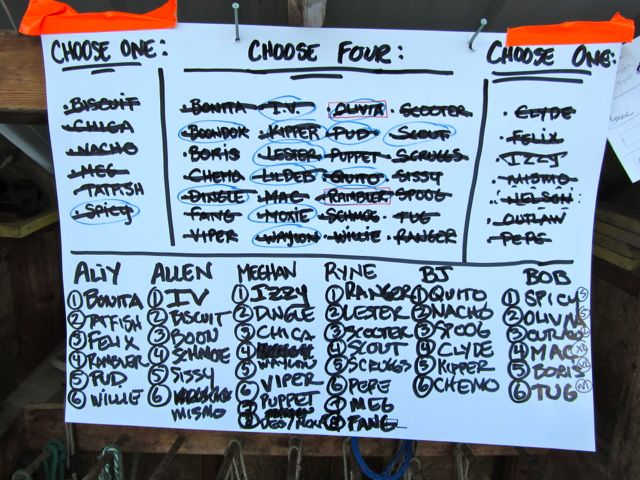 CHOOSE ONE: CHOOSE FOUR: CHOOSE ONE:
BISCUIT
CHICA
NACHO
MEG
TATFISH
SPICY
BONITA I.V. OLIVIA SCOOTER
BOONDOK KIPPER PUD SCOUT
BORIS LESTER PUPPET SCRUGGS
CHEMO LILDEB QUITO SISSY
DINGLE MAC RAMBLER SPOOG
FANG MOXIE SCHMOE TUG
VIPER WAYLON WILLIE RANGER
CLYDE
FELIX
IZZY
MISMO
NELSON
OUTLAW
PEPE
ALIY
1 BONITA
2 TATFISH
3 FELIX
4 RAMBLER
5 PUD
6 WILLIE
ALLEN
1 IV
2 BISCUIT
3 BOON
4 SCHMOE
5 SISSY
6
MISMO
MEGHAN
1 IZZY
2 DINGLE
3 CHICA
4
5 WAYLON
6 VIPER
7 PUPPET
8
RYNE
1 RANGER
2 LESTER
3 SCOOTER
4 SCOUT
5 SCRUGGS
6 PEPE
7 MEG
8 FANG
BJ
1 QUITO
2 NACHO
3 SPOOG
4 CLYDE
5 KIPPER
6 CHEMO
BOB
1 SPICY
2 OLIVIA
3 OUTLAW
4 MAC
5 BORIS
6 TUG